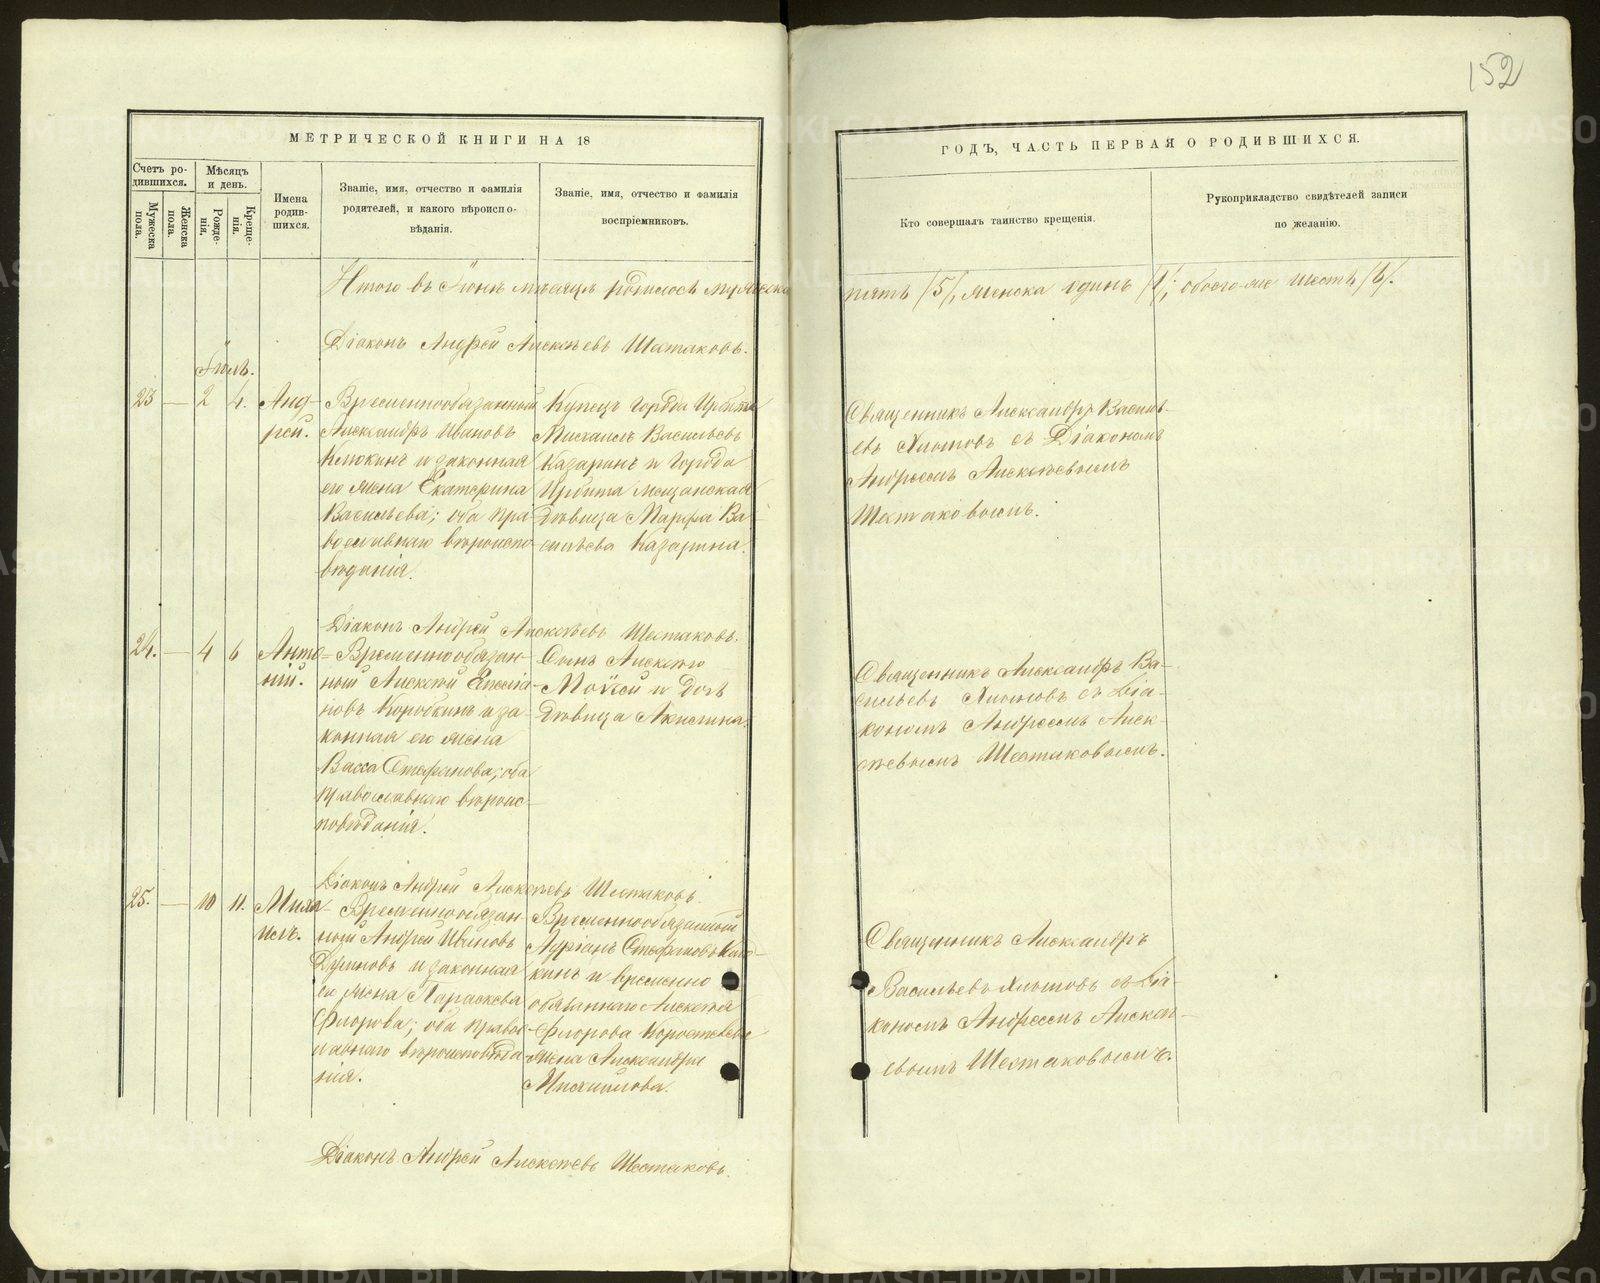 152
МЕТРИЧЕСКОЙ КНИГИ НА 18
ГОДЪ, ЧАСТЬ ПЕРВАЯ О РОДИВШИХСЯ.
Счетъ ро-
дившихся.
Мужеска
пола.
Женска
пола.
Мѣсяцъ
и день.
Рожде-
нія.
Креще-
нія.
Имена
родив-
шихся.
Званіе, имя, отчество и фамилія
родителей, и какого вѣроиспо-
вѣданія.
Званіе, имя, отчество и фамилія
воспріемниковъ.
Кто совершалъ таинство крещенія.
Рукоприкладство свидѣтелей записи
по желанію.
Итого въ Іюнѣ мѣсяцѣ родилось мужеска
пять /5/, женска одинъ /1/; обоего-же шесть /6/.
Діаконъ Андрей Алексѣевъ Шестаковъ.
Іюль.
23 — 2 4.
Анд-
рей.
Временнообязанный
Александръ Ивановъ
Клюкинъ и законная
его жена Екатерина
Васильева; оба пра-
вославнаго вѣроиспо-
вѣданія.
Купецъ города Ирбита
Михаилъ Васильевъ
Казаринъ и города
Ирбита мещанская
дѣвица Марфа Ва-
сильева Казарина.
Священникъ Александръ Василь-
евъ съ Діакономъ
Андреемъ Алексѣевымъ
Шестаковымъ.
Діаконъ Андрей Алексѣевъ Шестаковъ.
24. — 4 6
Анто-
ній.
Временнообязан-
ный Алексѣй Емелiа-
новъ Коробкинъ и за-
конная его жена
Васса Стефанова; оба
православнаго вѣроис-
повѣданія.
Сынъ Алексѣя
Моѵсей и дочь
дѣвица Акилина.
Священникъ Александръ Ва-
сильевъ съ Діа-
кономъ Андреемъ Алек-
сѣевымъ Шестаковымъ.
Діаконъ Андрей Алексѣевъ Шестаковъ.
25. — 10 11.
Миха-
илъ.
Временнообязан-
ный Андрей Ивановъ
и законная
его жена Параскева
Флорова; оба право-
славнаго вѣроисповѣда-
нія.
Временнообязанный
Стефановъ
кинъ и временно
обязаннаго Алексѣя
Флорова
жена Александра
Михайлова.
Священникъ Александръ
Васильевъ съ Діа-
кономъ Андреемъ Алексѣ-
евымъ Шестаковымъ.
Діаконъ Андрей Алексѣевъ Шестаковъ.
METRIKI.GASO-URAL.RU